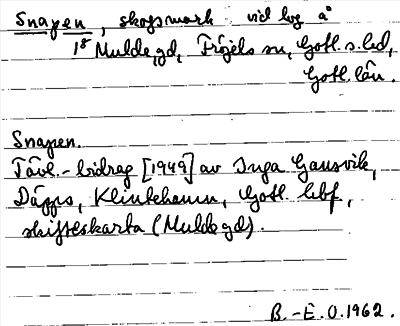 Snapen, skogsmark vid bog å
1⁸ Mulde gd, Fröjels sn, Gotl. s. hd,
Gotl. län.
Snapen.
Tävl.-bidrag [1949] av Inga Gansvik,
Däpps, Klintehamn, Gotl. hbf,
skifteskarta (Mulde gd).
B.-E. O. 1962.